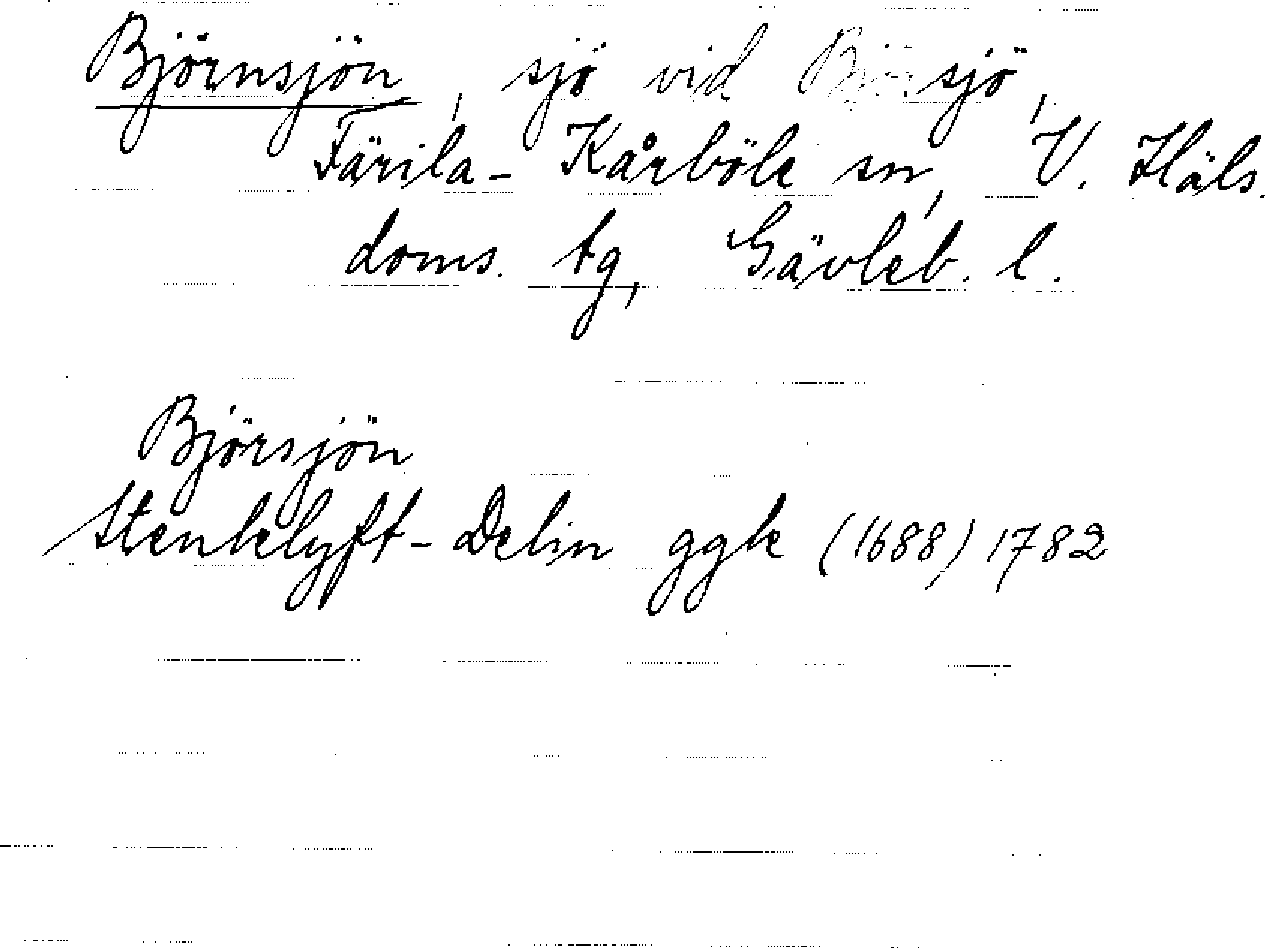 Björnsjön, sjö vid Björsjö,
Färila-Kårböle sn, V. Häls.
doms. tg, Gävleb. l.
Björsjön
Stenklyft-Delin ggk (1688) 1782